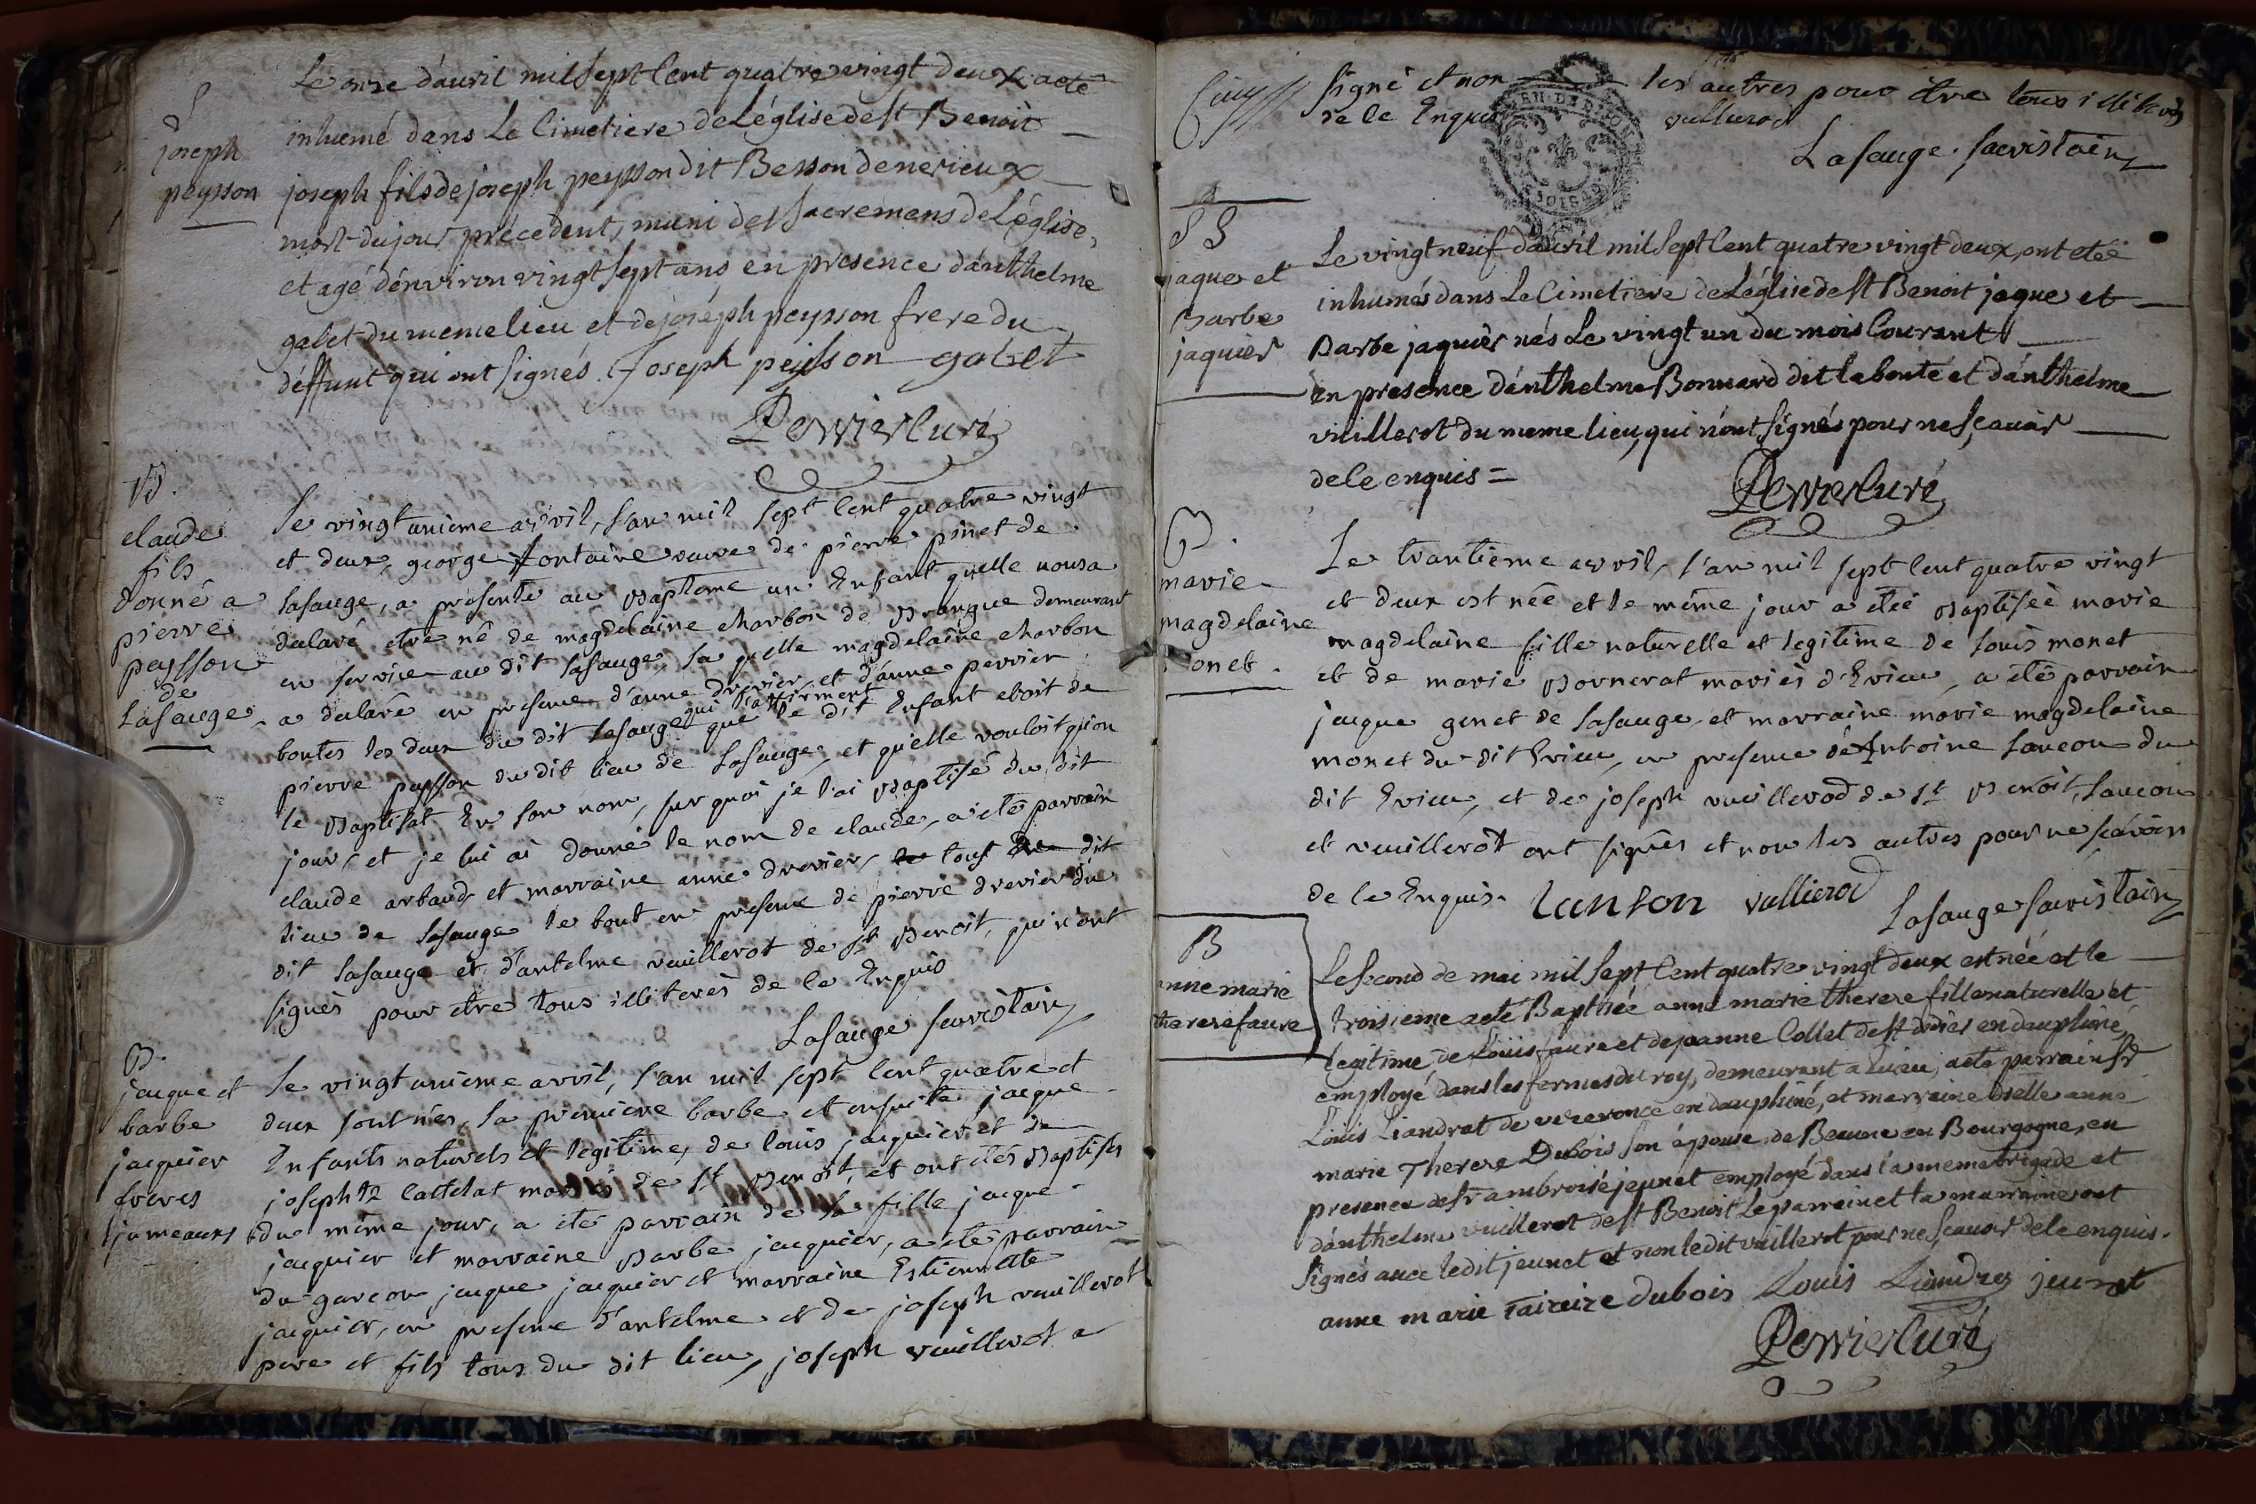 S
joseph
peysson
Le onze d'auril mil sept Cent quatre vingt deux, a eté
inhumé dans Le Cimetiere de L'église de st Benoit
joseph fils de joseph peysson dit Besson de nerieux
mort du jour précedent, muni des sacremens de L'église,
et agé d'énviron vingt sept ans en presence d'anthelme
galet du meme lieu et de joséph peysson frere du
déffunt qui ont signés. Joseph peysson galet
Perrier Curé
B.
claude
fils
donné a
pierre
peysson
de
Lasauge
Le vingt unieme avril, l'an mil sept Cent quatre vingt
et deux, george fontaine veuve de pierre pinet de
Lasauge, a presenté au Bapteme un Enfant qu'elle nous a
dalaré etre né de magdelaine charbon de Brangue demeurant
en service au dit Lasauge, la qu'elle magdelaine charbon
a dalaré en presence d'anne drevier, et d'anne perrier
qui l'affirment
boutes les deux du dit Lasauge que le dit Enfant etoit de
pierre peysson du dit lieu de Lasauge, et qu'elle vouloit qu'on
le Baptisat En son nom, sur quoi je l'ai Baptisé du dit
jour, et je lui ai donné le nom de claude, a eté parrain
claude arbaud et marraine anne drevier, tous du dit
lieu de Lasauge le tout en presence de pierre drevier du
dit Lasauge et d'antelme vuillerot de st Benoit, qui n'ont
signés pour etre tous illiterés de ce Enquis
Lasauge sacristain
B.
jacque et
barbe
jacquier
freres
jumeaux
Le vingt unieme avril, l'an mil sept Cent quatre et
deux sont nées, la premiere barbe et ensuite jacque
Enfants naturels et legitimes de louis jacquier et de
josephte Cattelat mariés de st Benoit, et ont étés Baptisés
du même jour, a eté parrain de la fille jacque
jacquier et marraine Barbe jacquier, a eté parrain
du garcon jacque jacquier et marraine Estiennette
jacquier, en presence d'antelme et de joseph vuillerot
pere et fils tous du dit lieu, joseph vuillerot a
signé et non les autres pour être tous illiterés
de ce Enquis vullierod
Lasauge sacristain
SS
jaque et
Barbe
jaquier
Le vingt neuf d'auril mil sept Cent quatre vingt deux, ont eté
inhumés dans Le Cimetiere de L'église de st Benoit jaque et
Barbe jaquier nés Le vingt un du mois Courant
en presence d'anthelme Bonnard dit la bonté et d'anthelme
vuillerot du meme lieu, qui n'ont signés pour ne sçauoir
de ce enquis =
Perrier Curé
B.
marie
magdelaine
monet
Le trantieme avril, l'an mil sept Cent quatre vingt
et deux est née et le même jour a eté Baptiseé marie
magdelaine fille naturelle et legitime de louis monet
et de marie Bornerat mariés d'Evieu, a eté parrain
jacque genet de Lasauge et marraine marie magdelaine
monet du dit Evieu, en presence de Antoine Lancon du
dit Evieu, et de joseph vuillerod de st Benoit, Lancon
et vuillerot ont signés et non les autres pour ne scavoir
de ce Enquis. Lanson vullierod
Lasauge sacristain
B
anne marie
therese faure
Le second de mai mil sept Cent quatre vingt deux est néé et le
troisieme a eté Baptiséé anne marie therese fille naturelle et
legitime, de Louis faure et de jeanne Collet de st didier en dauphiné
employé dans les fermes du roy, demeurant a Evieu, a eté parrain sr
Louis Liandrat de vezeronce en dauphiné, et marraine dselle anne
marie Therese Dubois son épouse de Beaune en Bourgogne, en
presence de sr ambroise jeunet employé dans la meme brigade et
d'anthelme vuillerot de st Benoit Le parrain et la marraine ont
signés auec ledit jeunet et non ledit vuillerot pour ne sçauoir de ce enquis.
anne marie Taireize dubois Louis Liandra jeunet
Perrier Curé